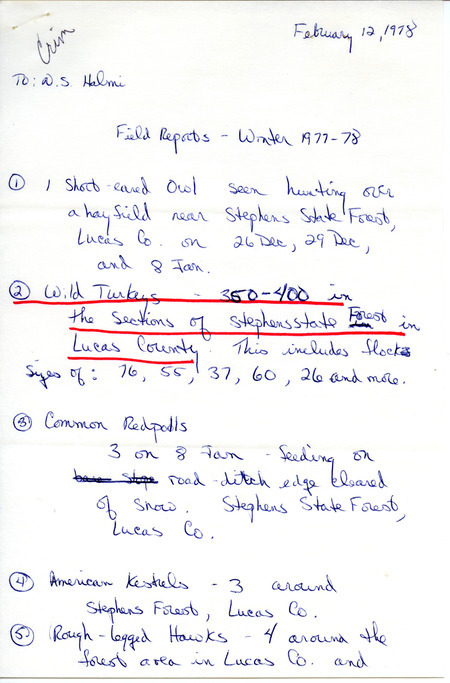 Crim
February 12, 1978
To: N.S. Halmi
Field Reports - Winter 1977-78
① 1 Short-eared Owl seen hunting over
a hayfield near Stephens State Forest,
Lucas Co. on 26 Dec, 29 Dec,
and 8 Jan.
② Wild Turkeys - 350-400 in
the sections of Stephens State Forest in
Lucas County. This includes flocks
sizes of: 76, 55, 37, 60, 26 and more.
③ Common Redpolls
3 on 8 Jan - feeding on
road-ditch edge cleared
of snow. Stephens State Forest,
Lucas Co.
④ American Kestrels - 3 around
Stephens Forest, Lucas Co.
⑤ Rough-legged Hawks - 4 around the
forest area in Lucas Co. and